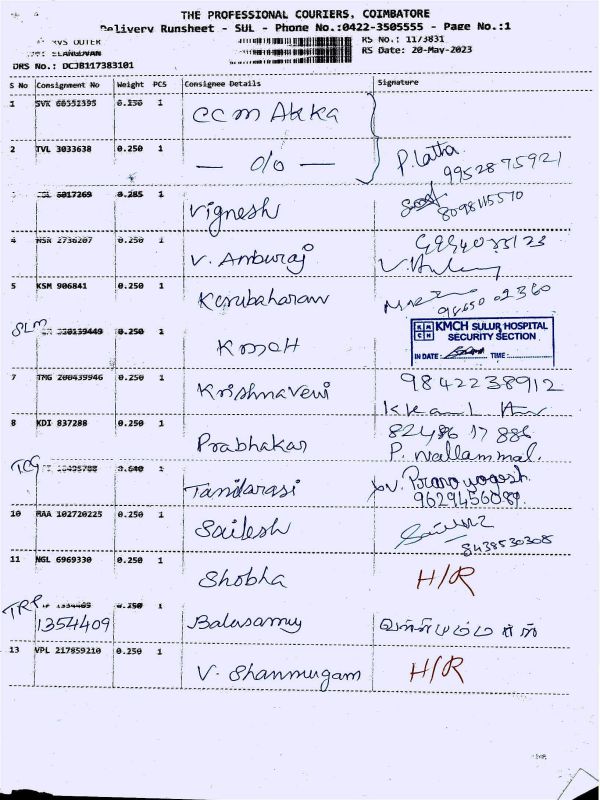 THE PROFESSIONAL COURIERS, COIMBATORE
Delivery Runsheet - SUL - Phone No.:0422-3505555 - Page No.:1
RVS OUTER RS No.: 1173831
ELANGOVAN RS Date: 20-May-2023
DRS No.: DCJB117383101
S No Consignment No Weight PCS Consignee Details Signature
1 SVK 60552395 0.250 1 CCM Akka
2 TVL 3033638 0.250 1 — O/O — P. Latha
9952875921
6017269 0.285 1 Vignesh 8098115570
4 NSR 2736207 0.250 1 V. Anburaj
5 KSM 906841 0.250 1 Kerubaharan
SLM 320139449 0.250 1 KMCH KMCH SULUR HOSPITAL
SECURITY SECTION
IN DATE: TIME:
7 TMG 200439946 0.250 1 Krishnaveni 9842238912
8 KDI 837288 0.250 1 Prabhakar 82486 17 886
P. Nallammal.
TCG 0.640 1 Tamilarasi
9629456089
10 MAA 102720225 0.250 1 Sailesh
8438530308
11 NGL 6969330 0.250 1 Shobha H/R
TRP 1354409 0.250 1 Balusamy
1354409
13 VPL 217859210 0.250 1 V. Shanmugam H/R